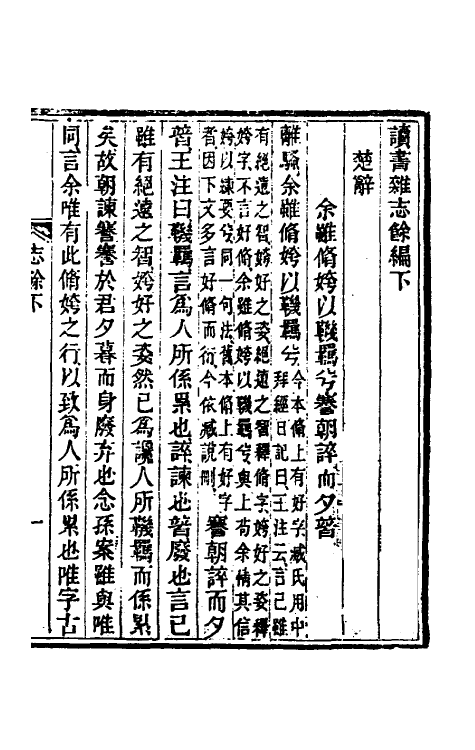 讀書雜志餘編下
楚辭
余雖脩姱以鞿羈兮謇朝誶而夕替
離騷余雖脩姱以鞿羈兮今本脩上有好字臧氏用中
拜經日記曰王注云言己雖
有絕遠之智姱好之姿絕遠之智釋脩字姱好之姿釋
姱字不言好脩余雖脩姱以鞿羈兮與上苟余情其信
姱以練要兮同一句法舊本脩上有好字
者因下文多言好脩而衍今依臧說刪謇朝誶而夕
替王注曰鞿羈言爲人所係累也誶諫也替廢也言己
雖有絕遠之智姱好之姿然已爲讒人所鞿羈而係累
矣故朝諫謇謇於君夕暮而身廢弃也念孫案雖與唯
同言余唯有此脩姱之行以致爲人所係累也唯字古
志餘下
一